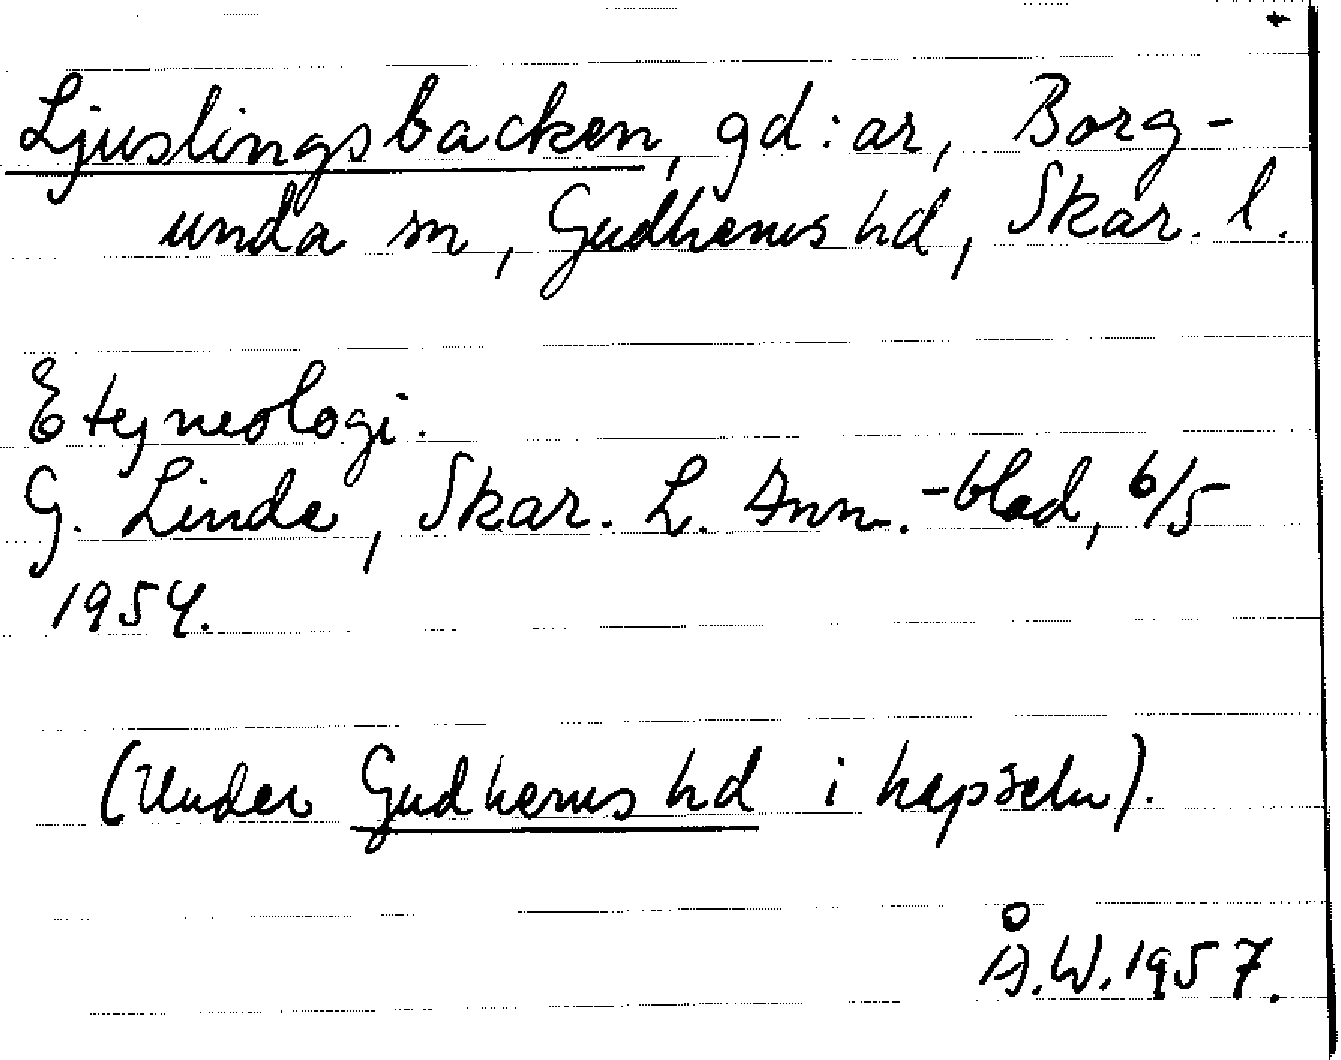 Ljuslingsbacken, gd:ar, Borg-
unda sn, Gudhems hd, Skar. l.
Etymologi.
G. Linde, Skar. L. Ann.-blad, 6/5
1954.
(Under Gudhems hd i kapseln).
Å.W. 1957.